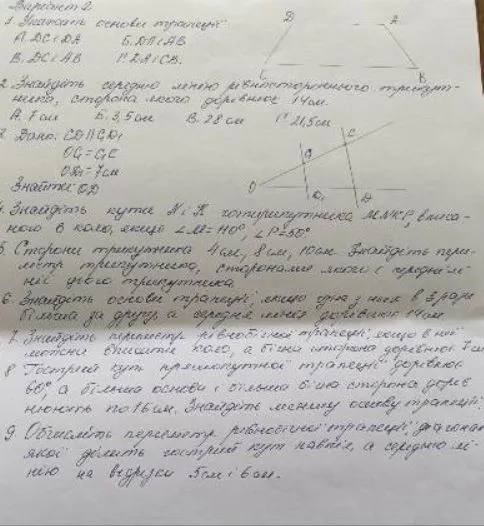 Варіант 2
1. Указать основи трапеції
D A
А. DC і DA Б. DA і AB
В. DC і AB Г. DA і CB.
C B
2. Знайдіть середню лінію рівностороннього трикут-
ника, сторона якого дорівнює 14 см.
А. 7 см Б. 3,5 см В. 28 см Г. 21,5 см
3. Дано: CD || GD₁
OG = GC
OD₁ = 7 см
Знайти: OD
C
G
O D₁ D
4. Знайдіть кути N і K чотирикутника MNKP, вписа-
ного в коло, якщо ∠M = 110°, ∠P = 50°
5. Сторони трикутника 4 см, 8 см, 10 см. Знайдіть пери-
метр трикутника, сторонами якого є середні лі-
нії цього трикутника.
6. Знайдіть основи трапеції, якщо одна з них в 3 рази
більша за другу, а середня лінія дорівнює 14 см
7. Знайдіть периметр рівнобічної трапеції, якщо в неї
можна вписати коло, а бічна сторона дорівнює 7 см
8 Гострий кут прямокутної трапеції дорівнює
60°, а більша основа і більша бічна сторона дорів
нюють по 16 см. Знайдіть меншу основу трапеції.
9. Обчисліть периметр рівнобічної трапеції, діагональ
якої ділить гострий кут навпіл, а середню лі-
нію на відрізки 5 см і 6 см.